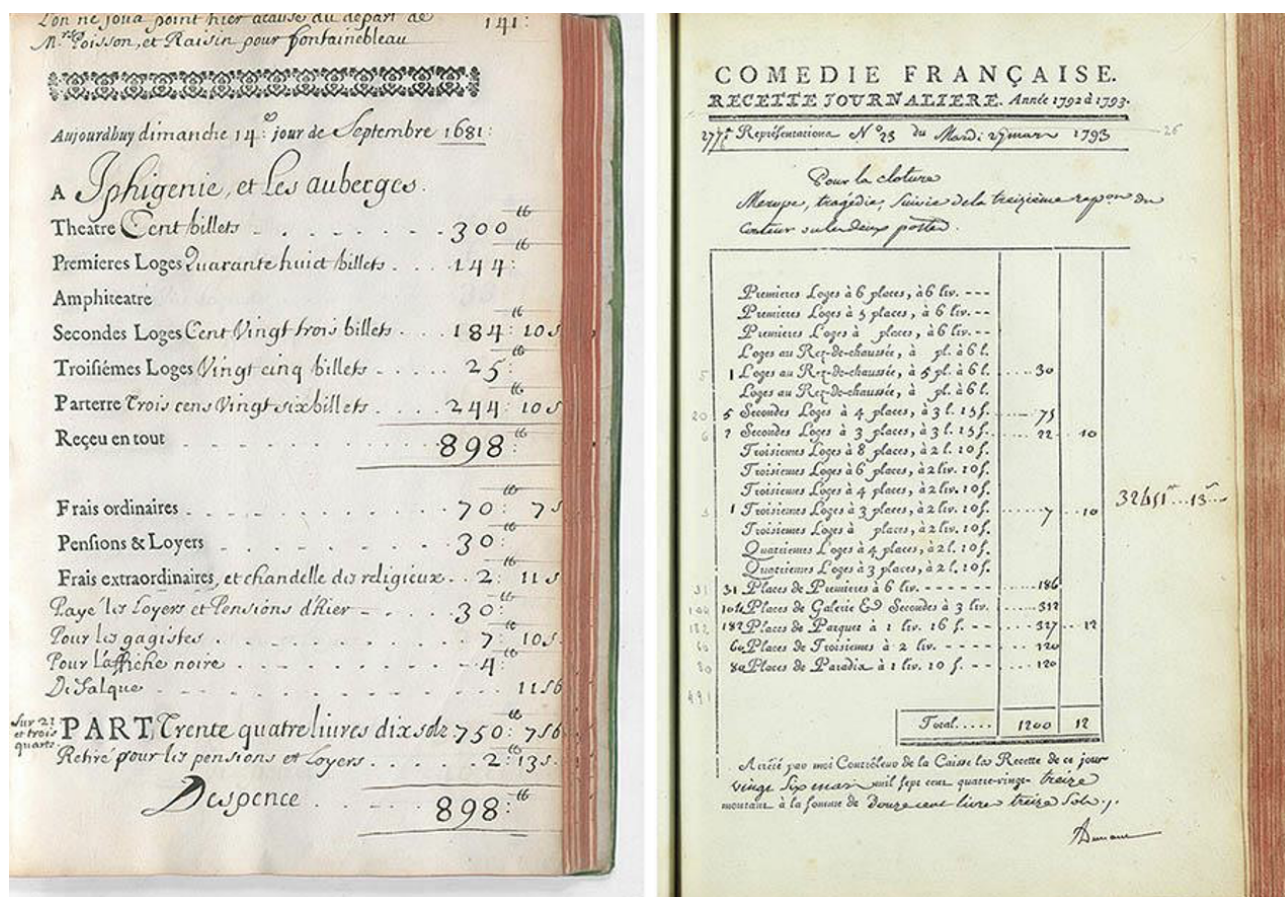 L'on ne joüa point hier acause du depart de 141:
Mrs Poisson, et Raisin pour fontainebleau
Aujourdhuy dimanche 14e: jour de Septembre 1681:
A Iphigenie, et Les auberges.
Theatre Cent billets 300tt
Premieres Loges Quarante huict billets 144:tt
Amphiteatre
Secondes Loges Cent Vingt trois billets 184:tt 10s
Troisiémes Loges Vingt cinq billets 25:tt
Parterre Trois cens Vingt six billets 244:tt 10s
Reçeu en tout 898:tt
Frais ordinaires 70:tt 7s
Pensions & Loyers 30:tt
Frais extraordinaires, et chandelle des religieux 2:tt 11s
Payé les Loyers et Pensions d'hier 30:tt
Pour les gagistes 7:tt 10s.
Pour L'affiche noire 4:tt
De Salque 11s6
Sur 21 et trois quarts PART Trente quatre liures dix solz 750:tt 7s6
Retiré pour les pensions et Loyers 2:tt 13s.
Despence 898:tt
COMEDIE FRANÇAISE.
RECETTE JOURNALIERE. Année 1792 à 1793.
2775 Représentations No 23 du Mardi mars 1793 26
Pour la cloture
Merope, tragédie, Suivie de la treizième repon du
Conteur ou les deux postes.
Premieres Loges à 6 places, à 6 liv. ---
Premieres Loges à 5 places, à 6 liv. --
Premieres Loges à places, à 6 liv. --
Loges au Rez-de-chaussée, à pl. à 6 l.
5 1 Loges au Rez-de-chaussée, à 5 pl. à 6 l. 30
Loges au Rez-de-chaussée, à pl. à 6 l.
20 5 Secondes Loges à 4 places, à 3 l. 15 s. 75
6 2 Secondes Loges à 3 places, à 3 l. 15 s. 22 10
Troisiemes Loges à 8 places, à 2 l. 10 s.
Troisiemes Loges à 6 places, à 2 liv. 10 s.
Troisiemes Loges à 4 places, à 2 liv. 10 s.
3 1 Troisiemes Loges à 3 places, à 2 liv. 10 s. 7 10
Troisiemes Loges à places, à 2 liv. 10 s.
Quatriemes Loges à 4 places, à 2 l. 10 s.
Quatriemes Loges à 3 places, à 2 l. 10 s.
31 31 Places de Premieres à 6 liv. 186
104 104 Places de Galerie & Secondes à 3 liv. 312
182 182 Places de Parquet à 1 liv. 16 s. 327 12
60 60 Places de Troisiemes à 2 liv. 120
80 80 Places de Paradis à 1 liv. 10 s. 120
491
Total..... 1200 12
Arrêté par moi Contrôleur de la Caisse la Recette de ce jour
vingt Six mars mil sept cent quatre-vingt treize
montant à la somme de douze cent livres treize Sols.